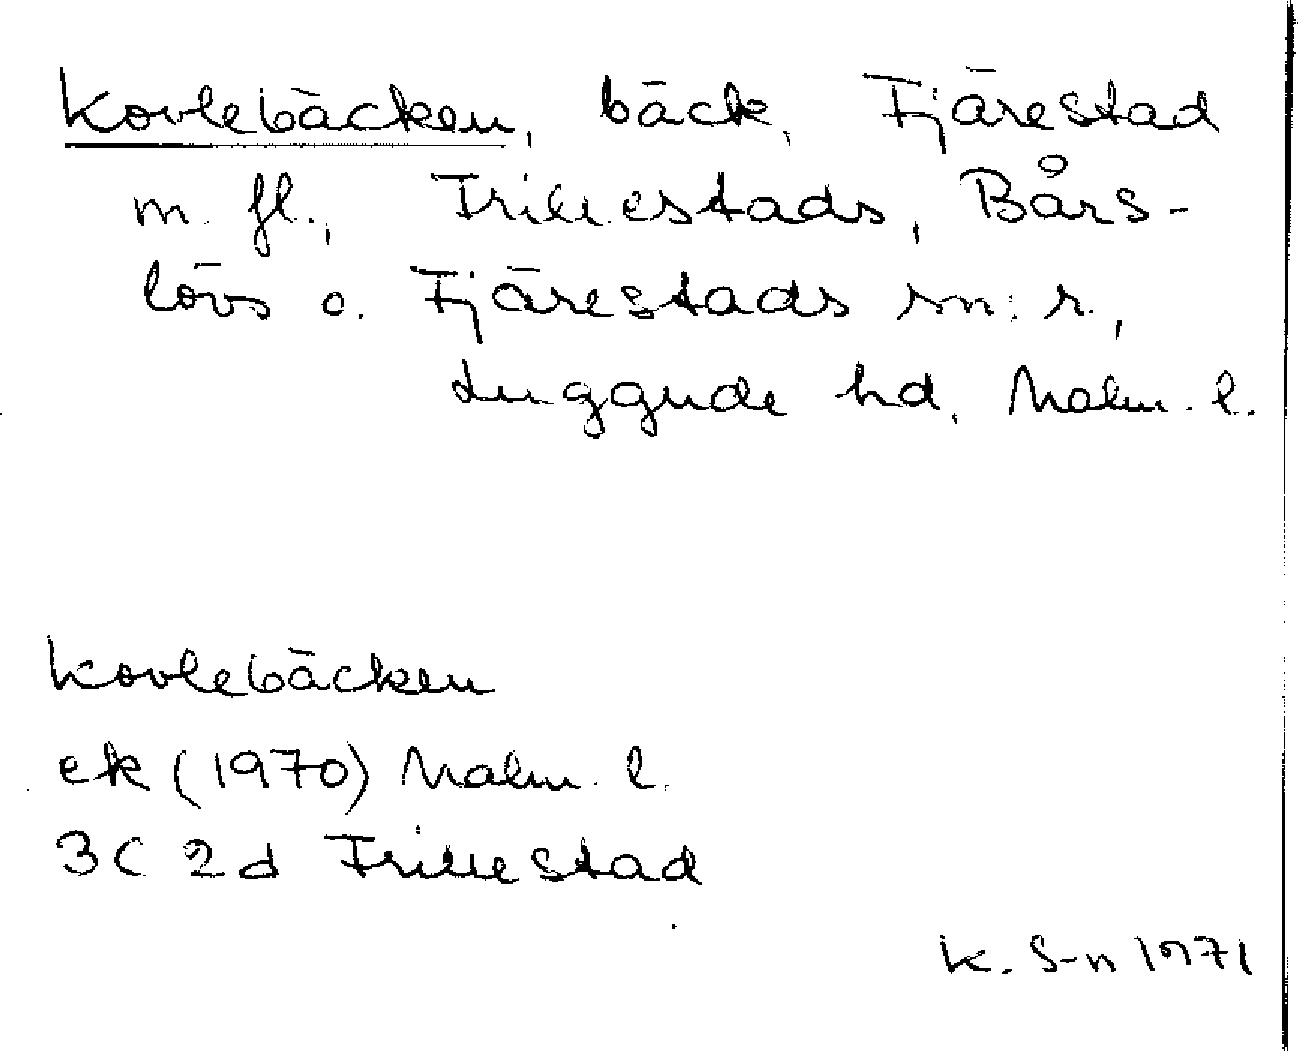 Kovlebäcken, bäck, Fjärestad
m. fl., Frillestads, Bårs-
lövs o. Fjärestads sn:r,
Luggude hd, Malm. l.
Kovlebäcken
ek (1970) Malm. l.
3C 2d Frillestad
K. S-n 1971